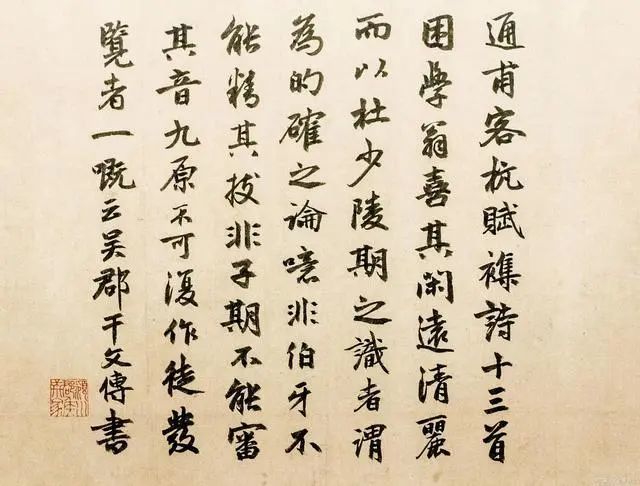 通甫客杭賦襍詩十三首
困學翁喜其閑遠清麗
而以杜少陵期之識者謂
為的確之論噫非伯牙不
能精其技非子期不能審
其音九原不可復作徒發
覽者一嘅云吴郡干文傳書